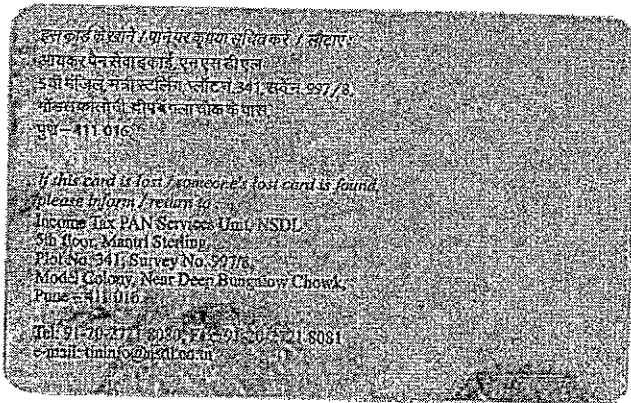 इस कार्ड के खोने / पाने पर कृपया सूचित करें / लौटाएं :
आयकर पैन सेवा इकाई, एन एस डी एल
5वीं मंजिल, मंत्री स्टर्लिंग, प्लॉट नं. 341, सर्वे नं. 997/8,
मॉडल कालोनी, दीप बंगला चौक के पास,
पुणे – 411 016.
If this card is lost / someone's lost card is found,
please inform / return to :
Income Tax PAN Services Unit, NSDL
5th floor, Mantri Sterling,
Plot No. 341, Survey No. 997/8,
Model Colony, Near Deep Bungalow Chowk,
Pune – 411 016.
Tel: 91-20-2721 8080, Fax: 91-20-2721 8081
e-mail: tininfo@nsdl.co.in